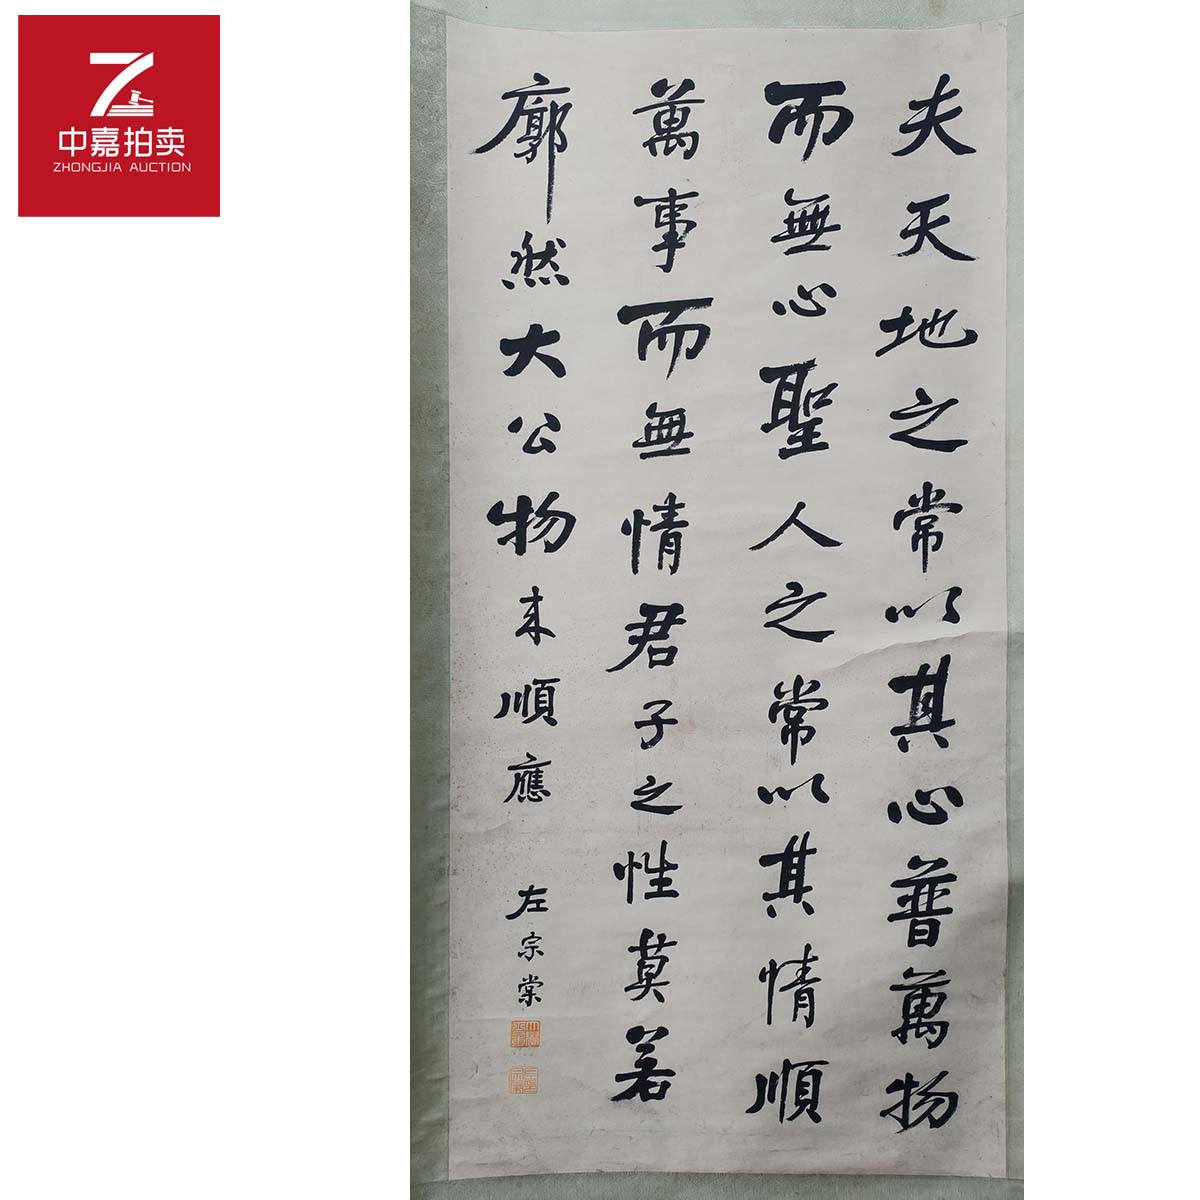 中嘉拍卖
ZHONGJIA AUCTION
夫天地之常以其心普萬物
而無心聖人之常以其情順
萬事而無情君子之性莫若
廓然大公物来順應
左宗棠